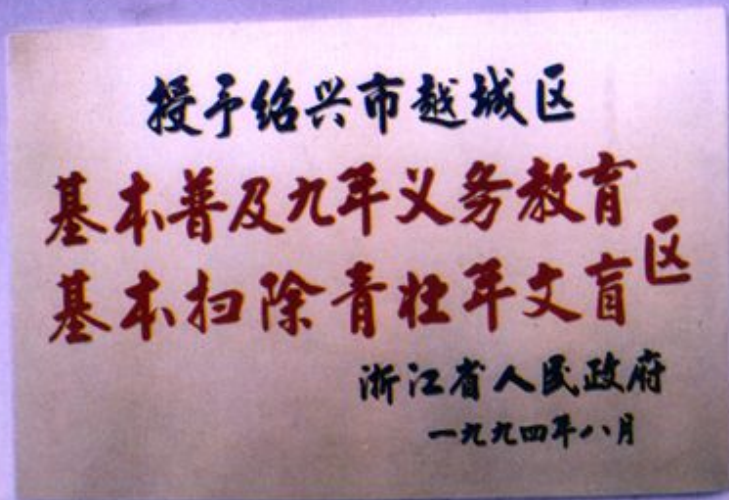 授予绍兴市越城区
基本普及九年义务教育
基本扫除青壮年文盲
区
浙江省人民政府
一九九四年八月